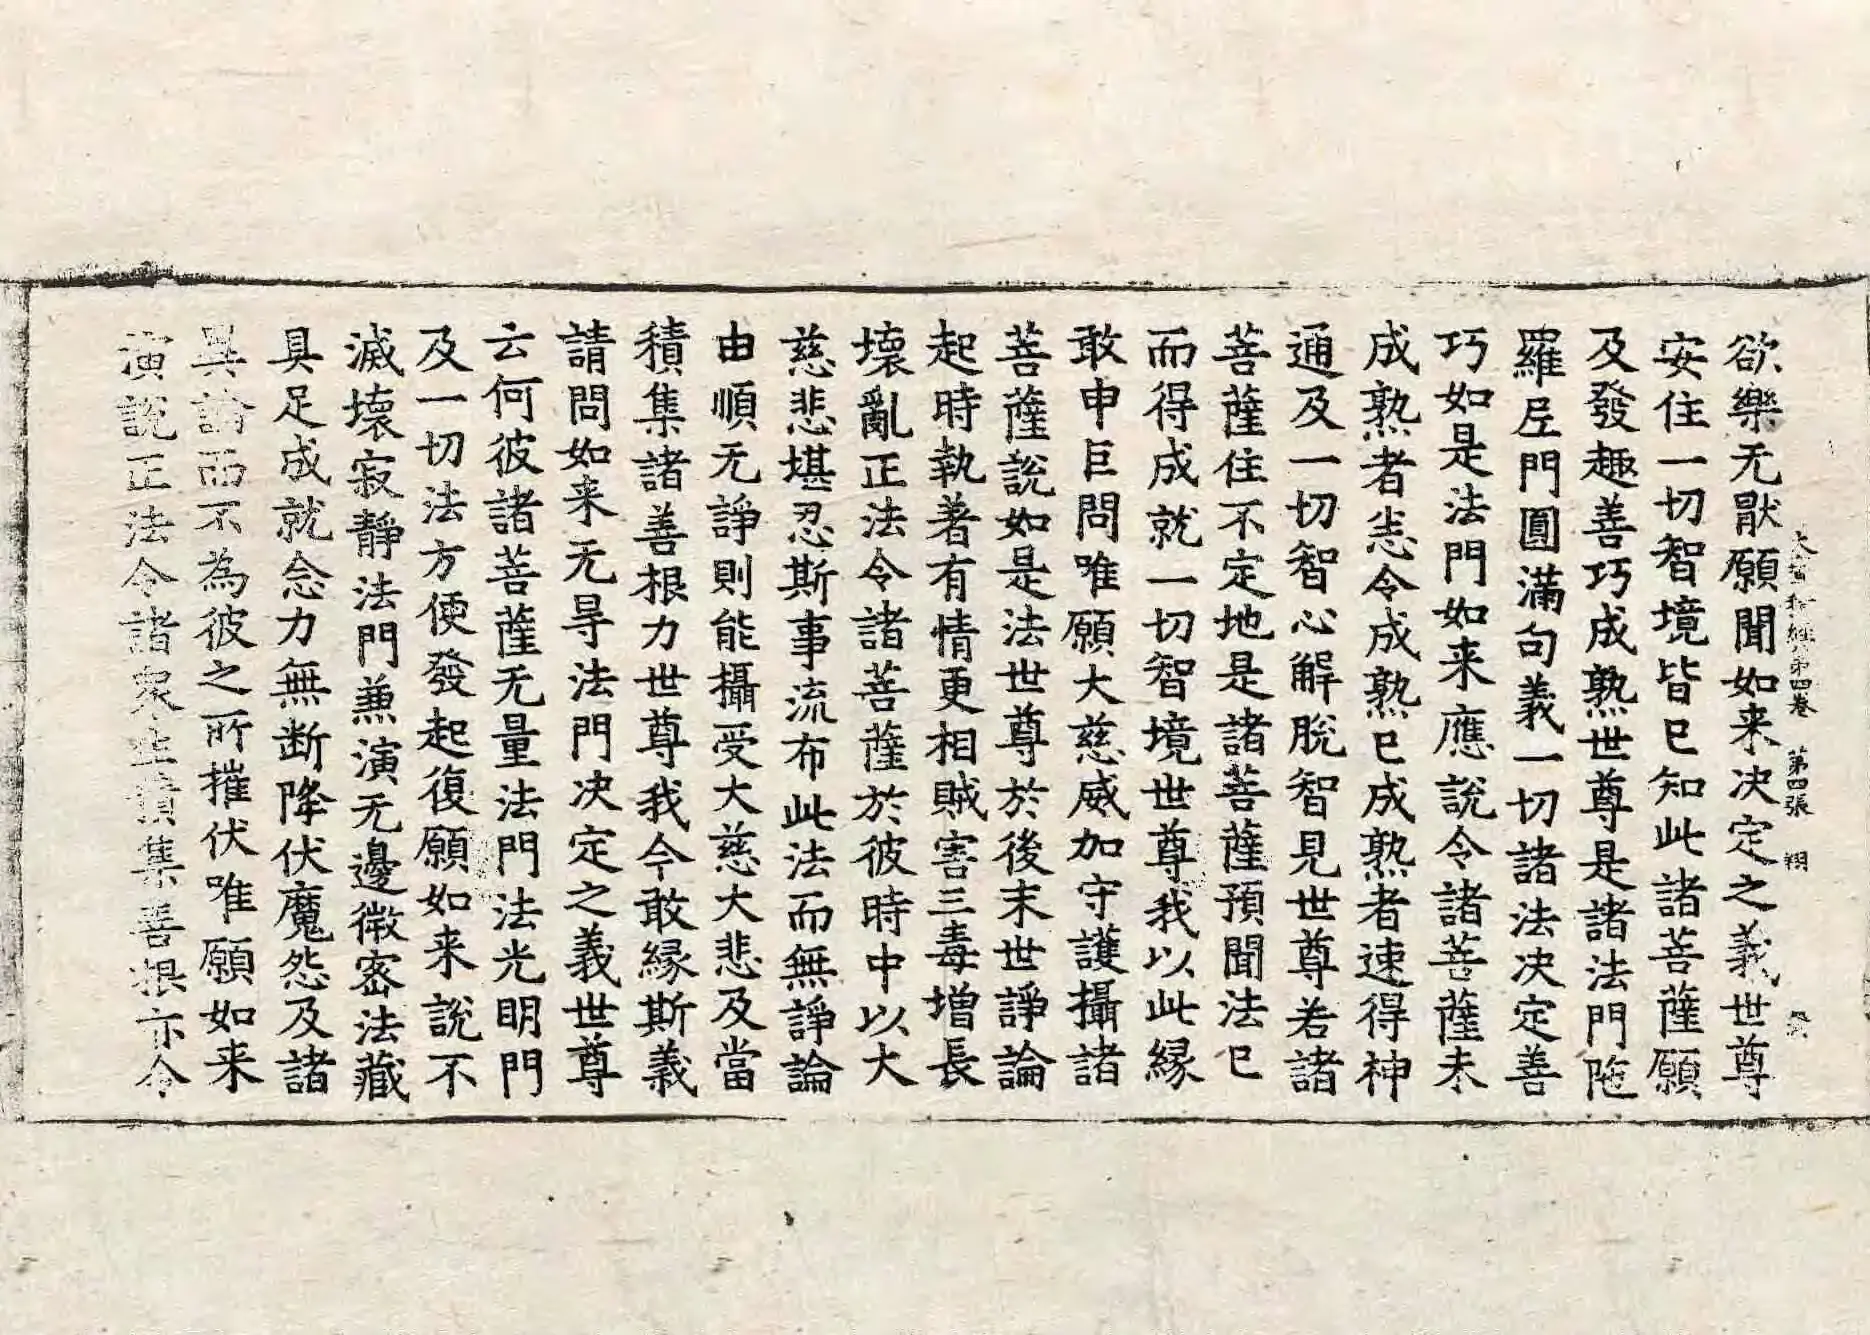 大寳積經第四卷　第四張　翔
欲樂无猒願聞如来决定之義世尊
安住一切智境皆已知此諸菩薩願
及發趣善巧成熟世尊是諸法門陁
羅尼門圓滿句義一切諸法决定善
巧如是法門如来應說令諸菩薩未
成熟者悉令成熟已成熟者速得神
通及一切智心解脫智見世尊若諸
菩薩住不定地是諸菩薩預聞法已
而得成就一切智境世尊我以此縁
敢申巨問唯願大慈威加守護攝諸
菩薩說如是法世尊於後末世諍論
起時執著有情更相賊害三毒增長
壞亂正法令諸菩薩於彼時中以大
慈悲堪忍斯事流布此法而無諍論
由順无諍則能攝受大慈大悲及當
積集諸善根力世尊我今敢縁斯義
請問如来无㝵法門决定之義世尊
云何彼諸菩薩无量法門法光明門
及一切法方便發起復願如来說不
滅壞寂靜法門兼演无邊微密法藏
具足成就念力無断降伏魔怨及諸
異論而不為彼之所摧伏唯願如来
演說正法令諸衆生積集善根亦令